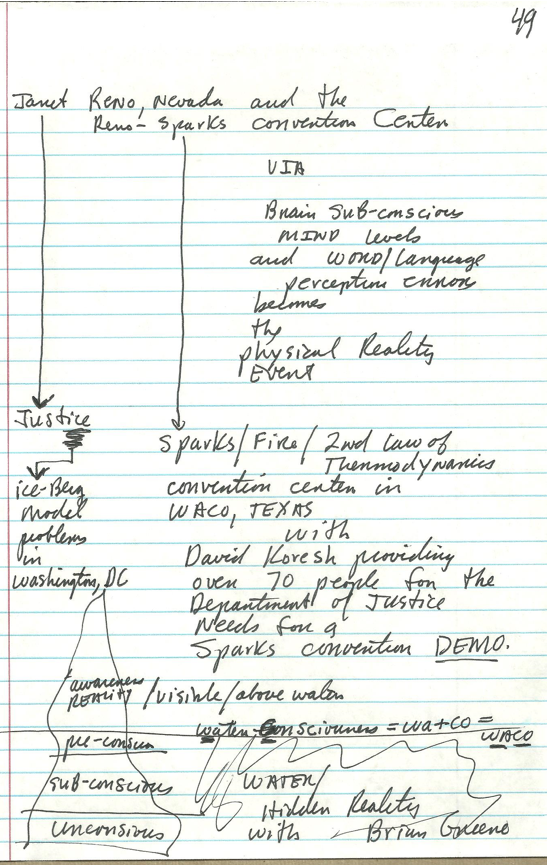 49
Janet Reno, Nevada and the
Reno-Sparks convention Center
VIA
Brain Sub-conscious
MIND levels
and WORD/Language
perception errors
becomes
the
physical Reality
Event
Justice
Sparks/Fire/2nd Law of
Thermodynamics
ice-Berg
model
problems
in
Washington, DC
convention center in
WACO, TEXAS
with
David Koresh providing
over 70 people for the
Department of Justice
Needs for a
Sparks convention DEMO.
awareness
REALITY /visible/above water
water-Consciouness = wa+co =
WACO
pre-consciu
sub-conscious
Unconsious
WATER/
Hidden Reality
with Brian Greene